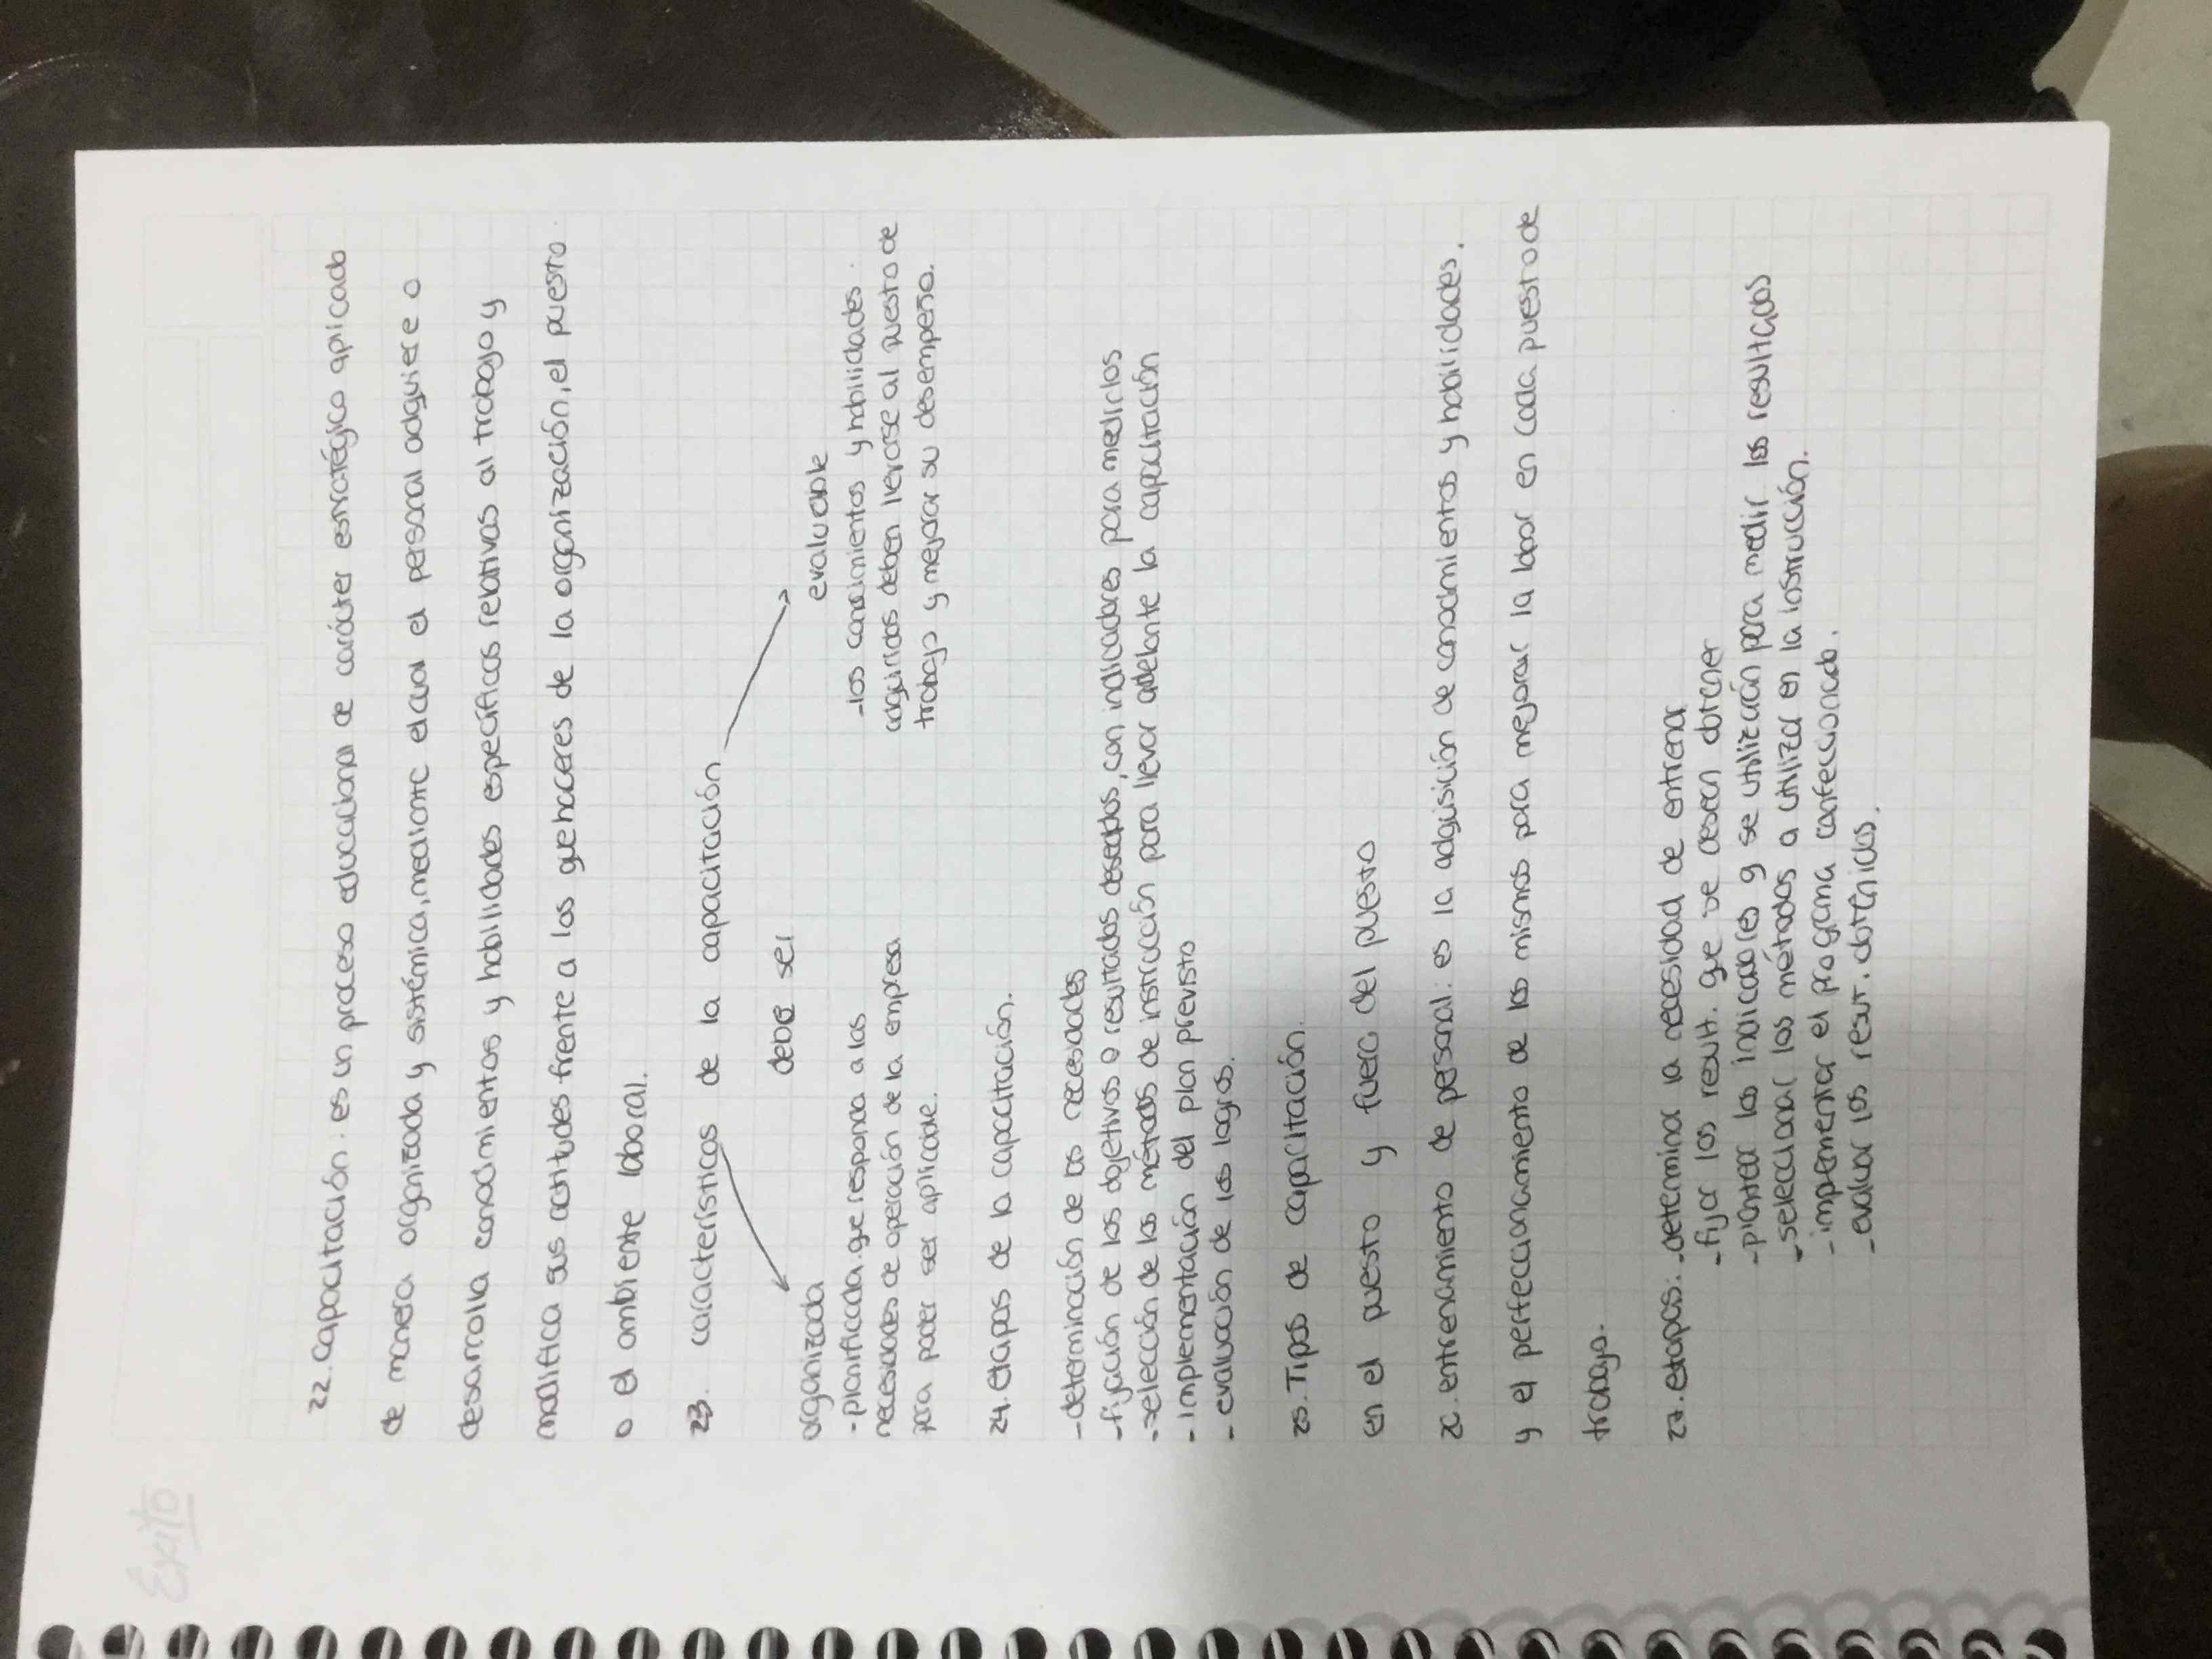 Exito
22. Capacitación: es un proceso educacional de carácter estratégico aplicado
de manera organizada y sistémica, mediante el cual el personal adquiere o
desarrolla conocimientos y habilidades específicas relativas al trabajo y
modifica sus actitudes frente a los quehaceres de la organización, el puesto
o el ambiente laboral.
23. características de la capacitación
debe ser
organizada
- planificada que responda a las
necesidades de operación de la empresa
para poder ser aplicable.
evaluable
- los conocimientos y habilidades
adquiridos deben llevarse al puesto de
trabajo y mejorar su desempeño.
24. etapas de la capacitación.
- determinación de las necesidades
- fijación de los objetivos o resultados deseados, con indicadores para medirlos
- selección de los métodos de instrucción para llevar adelante la capacitación
- implementación del plan previsto
- evaluación de los logros.
25. Tipos de capacitación.
en el puesto y fuera del puesto
26. entrenamiento de personal: es la adquisición de conocimientos y habilidades,
y el perfeccionamiento de los mismos para mejorar la labor en cada puesto de
trabajo.
27. etapas: - determinar la necesidad de entrenar
- fijar los result. que se desean obtener
- plantear los indicadores q se utilizarán para medir los resultados
- seleccionar los métodos a utilizar en la instrucción.
- implementar el programa confeccionado.
- evaluar los result. obtenidos.